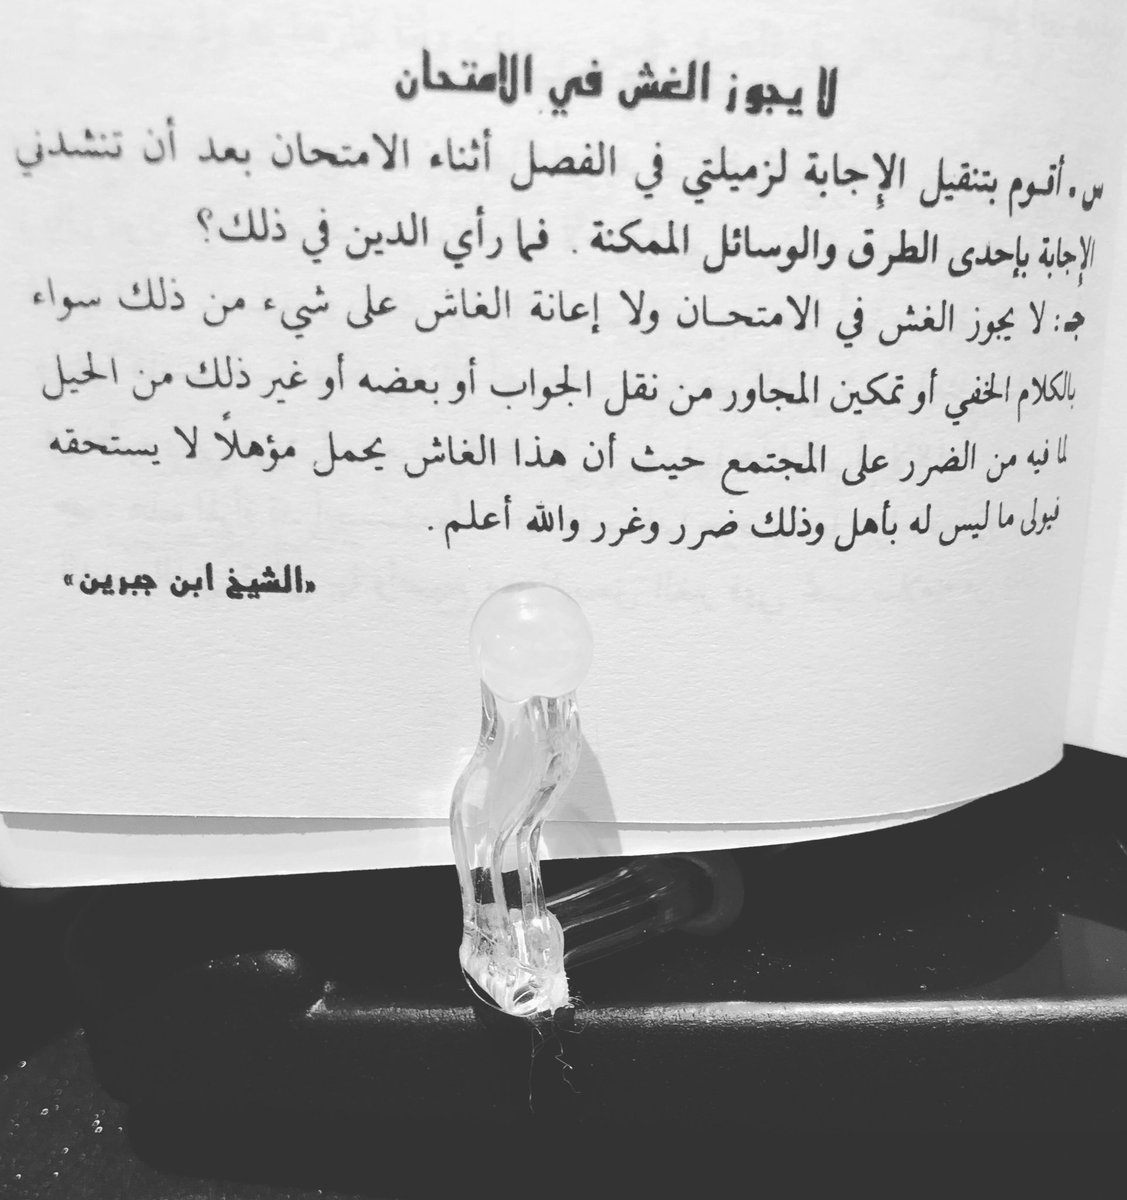 لا يجوز الغش في الامتحان
س . أقوم بتنقيل الإجابة لزميلتي في الفصل أثناء الامتحان بعد أن تنشدني
الإجابة بإحدى الطرق والوسائل الممكنة . فما رأي الدين في ذلك ؟
جـ : لا يجوز الغش في الامتحان ولا إعانة الغاش على شيء من ذلك سواء
بالكلام الخفي أو تمكين المجاور من نقل الجواب أو بعضه أو غير ذلك من الحيل
لما فيه من الضرر على المجتمع حيث أن هذا الغاش يحمل مؤهلاً لا يستحقه
فيولى ما ليس له بأهل وذلك ضرر وغرر والله أعلم .
«الشيخ ابن جبرين»